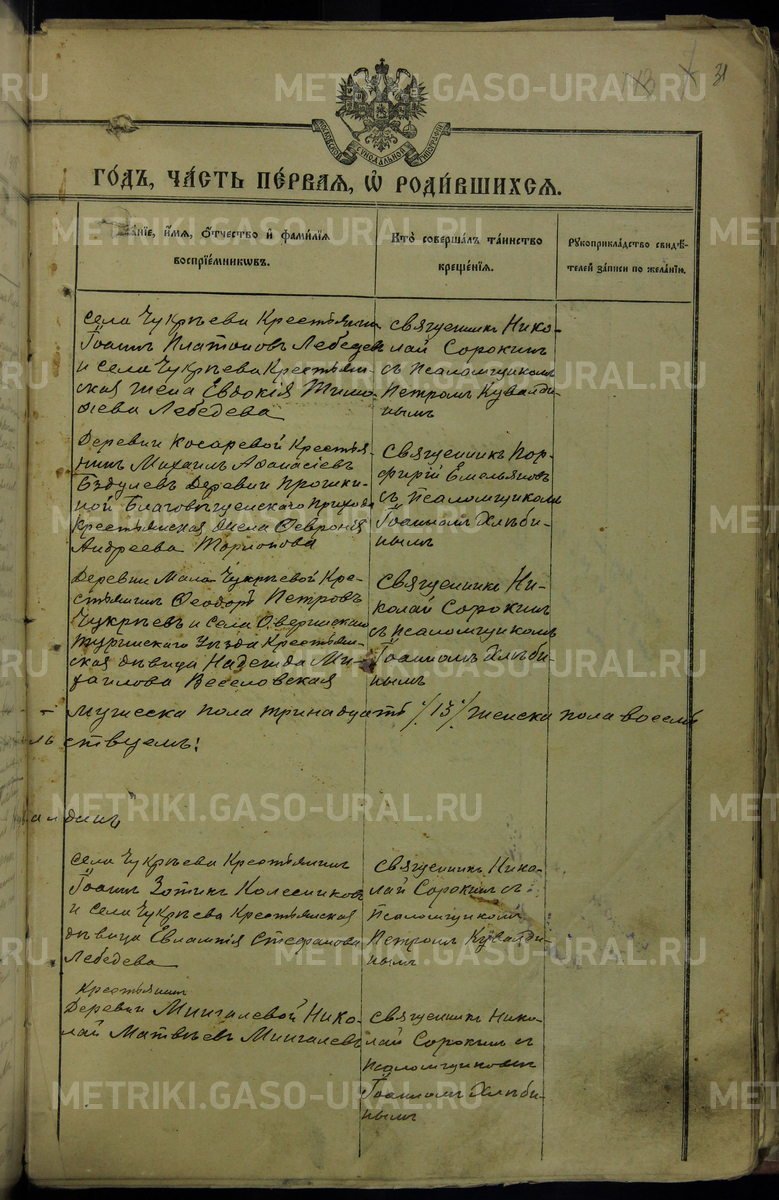 31
МОСКОВСКОЙ СѴНОДАЛЬНОЙ ТИПОГРАФІИ
ГО́ДЪ, ЧА́СТЬ ПЕ́РВАЯ, Ѡ҆ РОДИ́ВШИХСЯ.
Зва́нїе, и҆́мя, ѻ҆́тчество и҆ фами́лїя
воспрїе́мникѡвъ.
Кто̀ соверша́лъ та́инство
креще́нїя.
Рꙋкоприкла́дство свидѣ́-
телей за́писи по жела́нїю.
села Чукрѣева Крестьянинъ
Іоаннъ Платоновъ Лебедевъ
и села Чукрѣева Крестьян-
ская жена Евдокія Тимо-
фѣева Лебедева
Священникъ Нико-
лай Сорокинъ
съ Псаломщикомъ
Петромъ Кувалди-
нымъ
Деревни Косаревой Крестья-
нинъ Михаилъ Аѳанасіевъ
Бздулевъ Деревни Прошки-
ной Благовѣщенскаго Прихода
Крестьянская жена Ѳевронія
Андреева
Священникъ Пор-
фирій Емельяновъ
съ Псаломщикомъ
Іоанномъ Хлѣби-
нымъ
Деревни Мало Чукрѣевой Кре-
стьянинъ Ѳеодоръ Петровъ
Чукрѣевъ и села
Туринскаго Уѣзда Крестьян-
ская дѣвица Надежда Ми-
хаилова Веселовская
Священникъ Ни-
колай Сорокинъ
съ Псаломщикомъ
Іоанномъ Хлѣби-
нымъ
Мужеска пола тринадцать /13/ женска пола восемь
ствуемъ:
динъ
села Чукрѣева Крестьянинъ
Іоаннъ Зотикъ Колесниковъ
и села Чукрѣева Крестьянская
дѣвица Евлампія Стефанова
Лебедева
Священникъ Нико-
лай Сорокинъ съ
Псаломщикомъ
Петромъ Кувалди-
нымъ
Крестьянинъ
Деревни Мингалевой Нико-
лай Матвѣевъ Мингалевъ
Священникъ Нико-
лай Сорокинъ съ
Псаломщикомъ
Іоанномъ Хлѣби-
нымъ
METRIKI.GASO-URAL.RU
METRIKI.GASO-URAL.RU
METRIKI.GASO-URAL.RU
METRIKI.GASO-URAL.RU
METRIKI.GASO-URAL.RU
METRIKI.GASO-URAL.RU
METRIKI.GASO-URAL.RU
METRIKI.GASO-URAL.RU